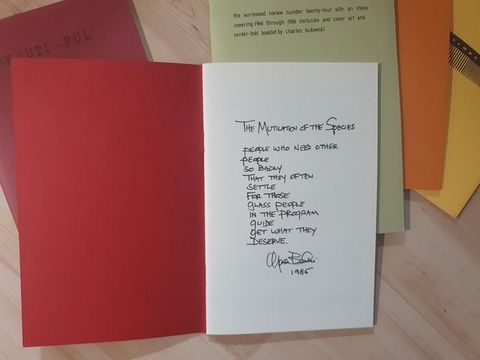 EAUTI-FUL
the wormwood review number twenty-four with an index
covering 1964 through 1966 inclusive and cover art and
center-fold booklet by charles bukowski
THE MUTILATION OF THE SPECIES
PEOPLE WHO NEED OTHER
PEOPLE
SO BADLY
THAT THEY OFTEN
SETTLE
FOR THOSE
GLASS PEOPLE
IN THE PROGRAM
GUIDE
GET WHAT THEY
DESERVE.
1985